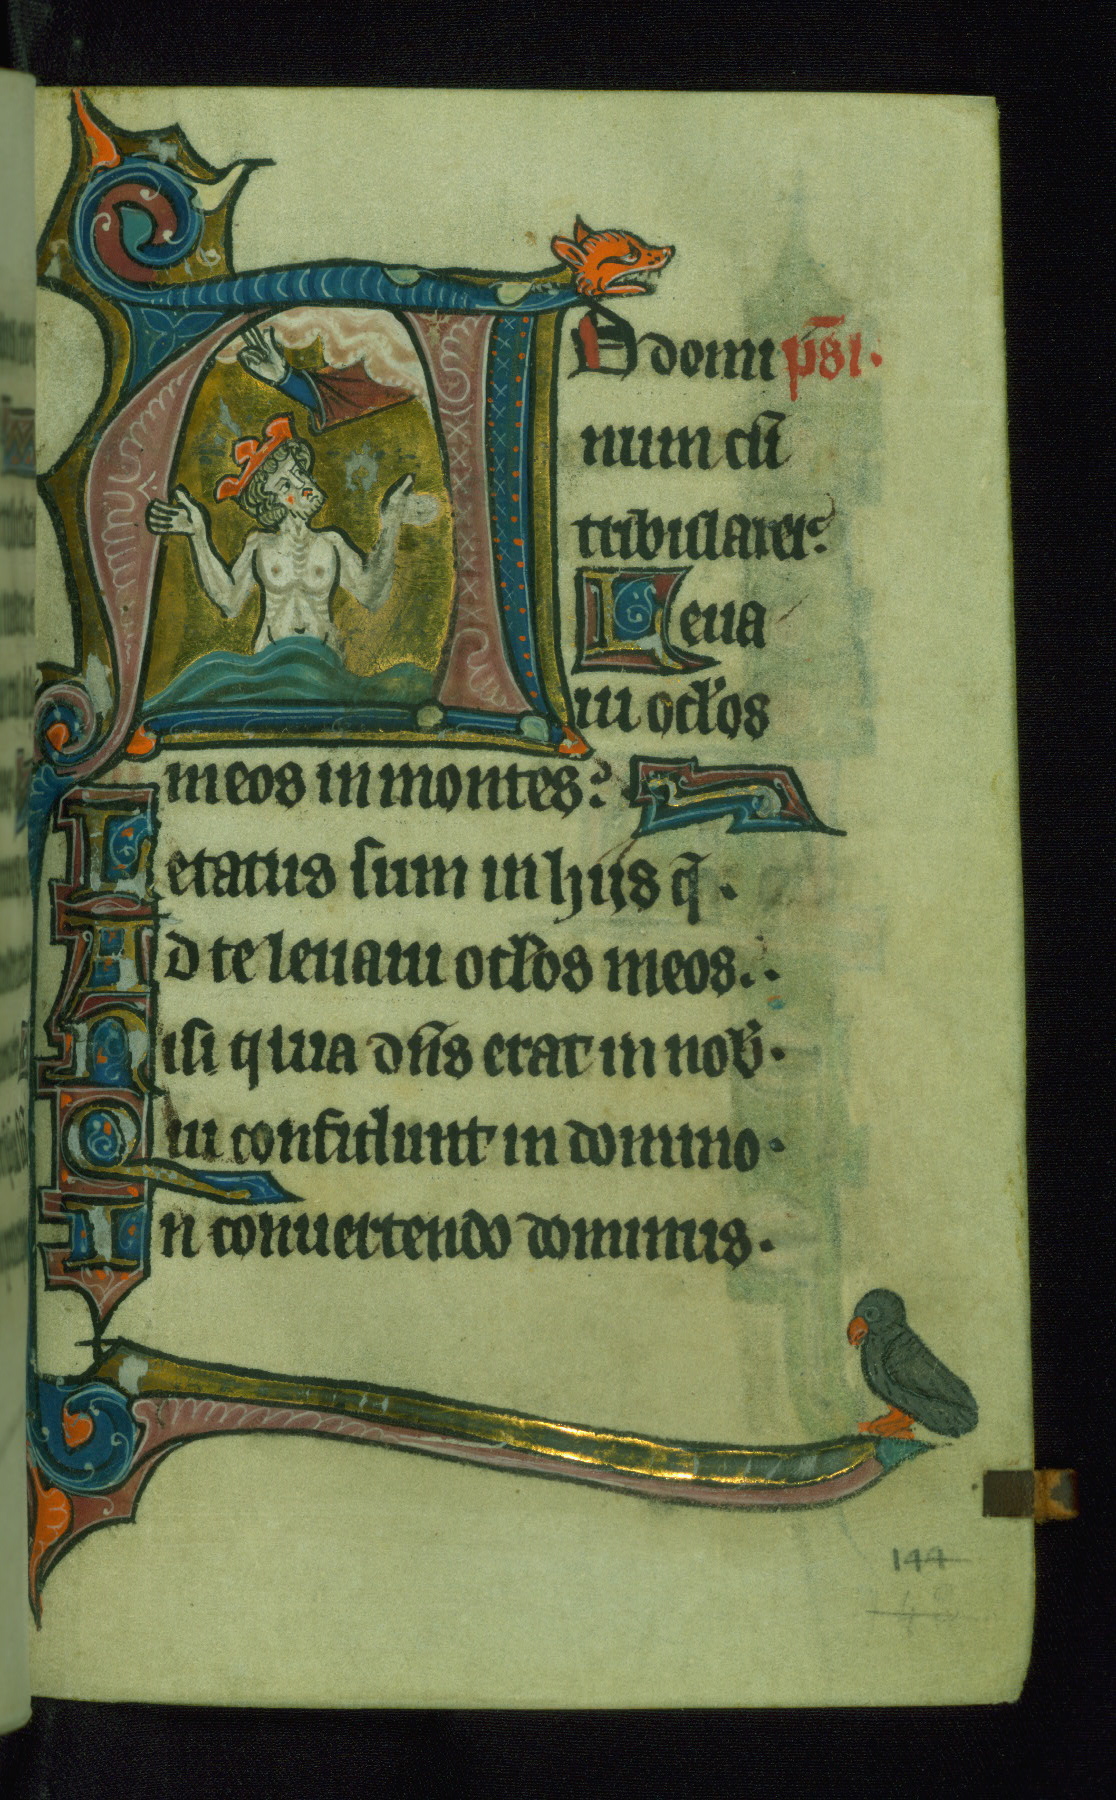 D domi ps̄i.
num cū
tribularer:
Leua
ui oclos
meos in montes:
Letatus sum in hijs q̄.
Ad te leuaui oclos meos.
Nisi quia dn̄s erat in nob.
Qui confidunt in domino.
In conuertendo dominus.
144